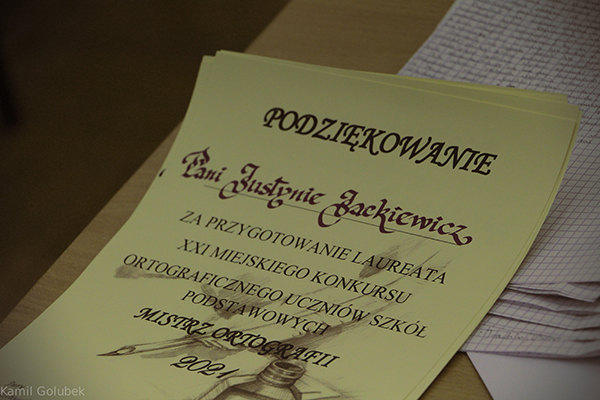 PODZIĘKOWANIE
Pani Justynie Jackiewicz
ZA PRZYGOTOWANIE LAUREATA
XXI MIEJSKIEGO KONKURSU
ORTOGRAFICZNEGO UCZNIÓW SZKÓŁ
PODSTAWOWYCH
MISTRZ ORTOGRAFII
2021
Kamil Golubek